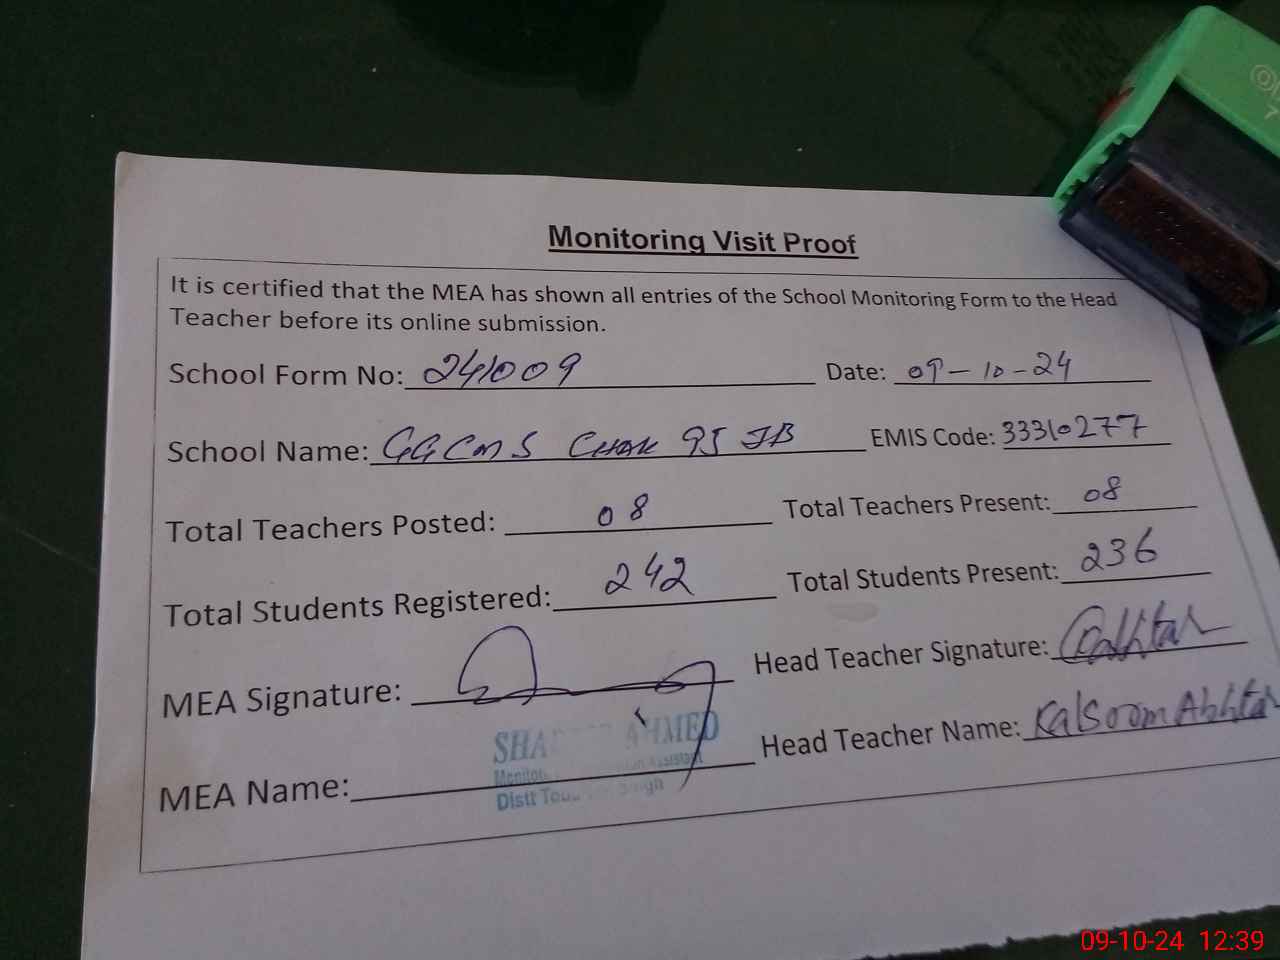 Monitoring Visit Proof
It is certified that the MEA has shown all entries of the School Monitoring Form to the Head
Teacher before its online submission.
School Form No: 241009 Date: 09-10-24
School Name: GGCMS Chak 95 JB EMIS Code: 33310277
Total Teachers Posted: 08 Total Teachers Present: 08
Total Students Registered: 242 Total Students Present: 236
MEA Signature: Head Teacher Signature:
MEA Name: Head Teacher Name: Kalsoom Akhtar
AHMED
Assistant
Distt
Singh
09-10-24 12:39